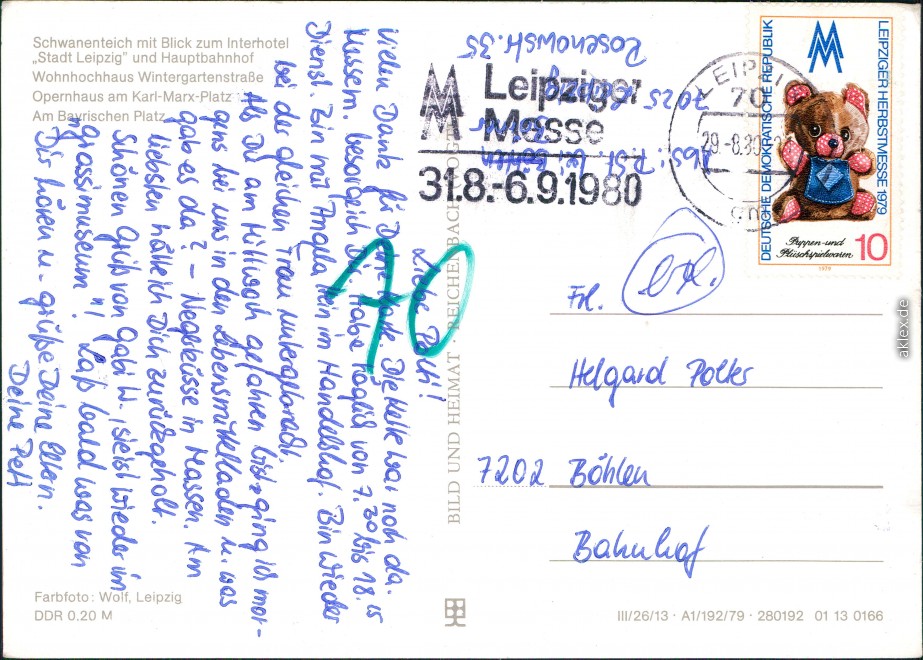 Schwanenteich mit Blick zum Interhotel
„Stadt Leipzig" und Hauptbahnhof
Wohnhochhaus Wintergartenstraße
Opernhaus am Karl-Marx-Platz
Am Bayrischen Platz
Liebe Polli!
Vielen Dank für Deine Karte. Die Kette war noch da.
Kussem. besorge ich Dir. Habe täglich von 7.30 bis 18.15
Dienst. Bin mit Angela Hein im Handelshof. Bin wieder
bei der gleichen Frau untergebracht.
Als Du am Mittwoch gefahren bist, ging ich mor-
gens bei uns in den Lebensmittelladen u. was
gab es da? - Negerküsse in Massen. Am
liebsten hätte ich Dich zurückgeholt.
Schönen Gruß von Gabi W. (sie ist wieder im
Grassimuseum)!! Laß bald was von
Dir hören u. grüße Deine Eltern.
Deine Peti
70
Abs.:
7025 Leipzig
Rosenowstr. 35
MM
Leipziger
Messe
31.8.-6.9.1980
LEIPZIG
70
29.-8.80
DEUTSCHE DEMOKRATISCHE REPUBLIK
LEIPZIGER HERBSTMESSE 1979
Puppen- und
Plüschspielwaren
10
1979
Frl.
Helgard Polter
7202 Böhlen
Bahnhof
BILD UND HEIMAT · REICHENBACH
Farbfoto: Wolf, Leipzig
DDR 0,20 M
III/26/13 · A1/192/79 · 280192 01 13 0166
aklex.de